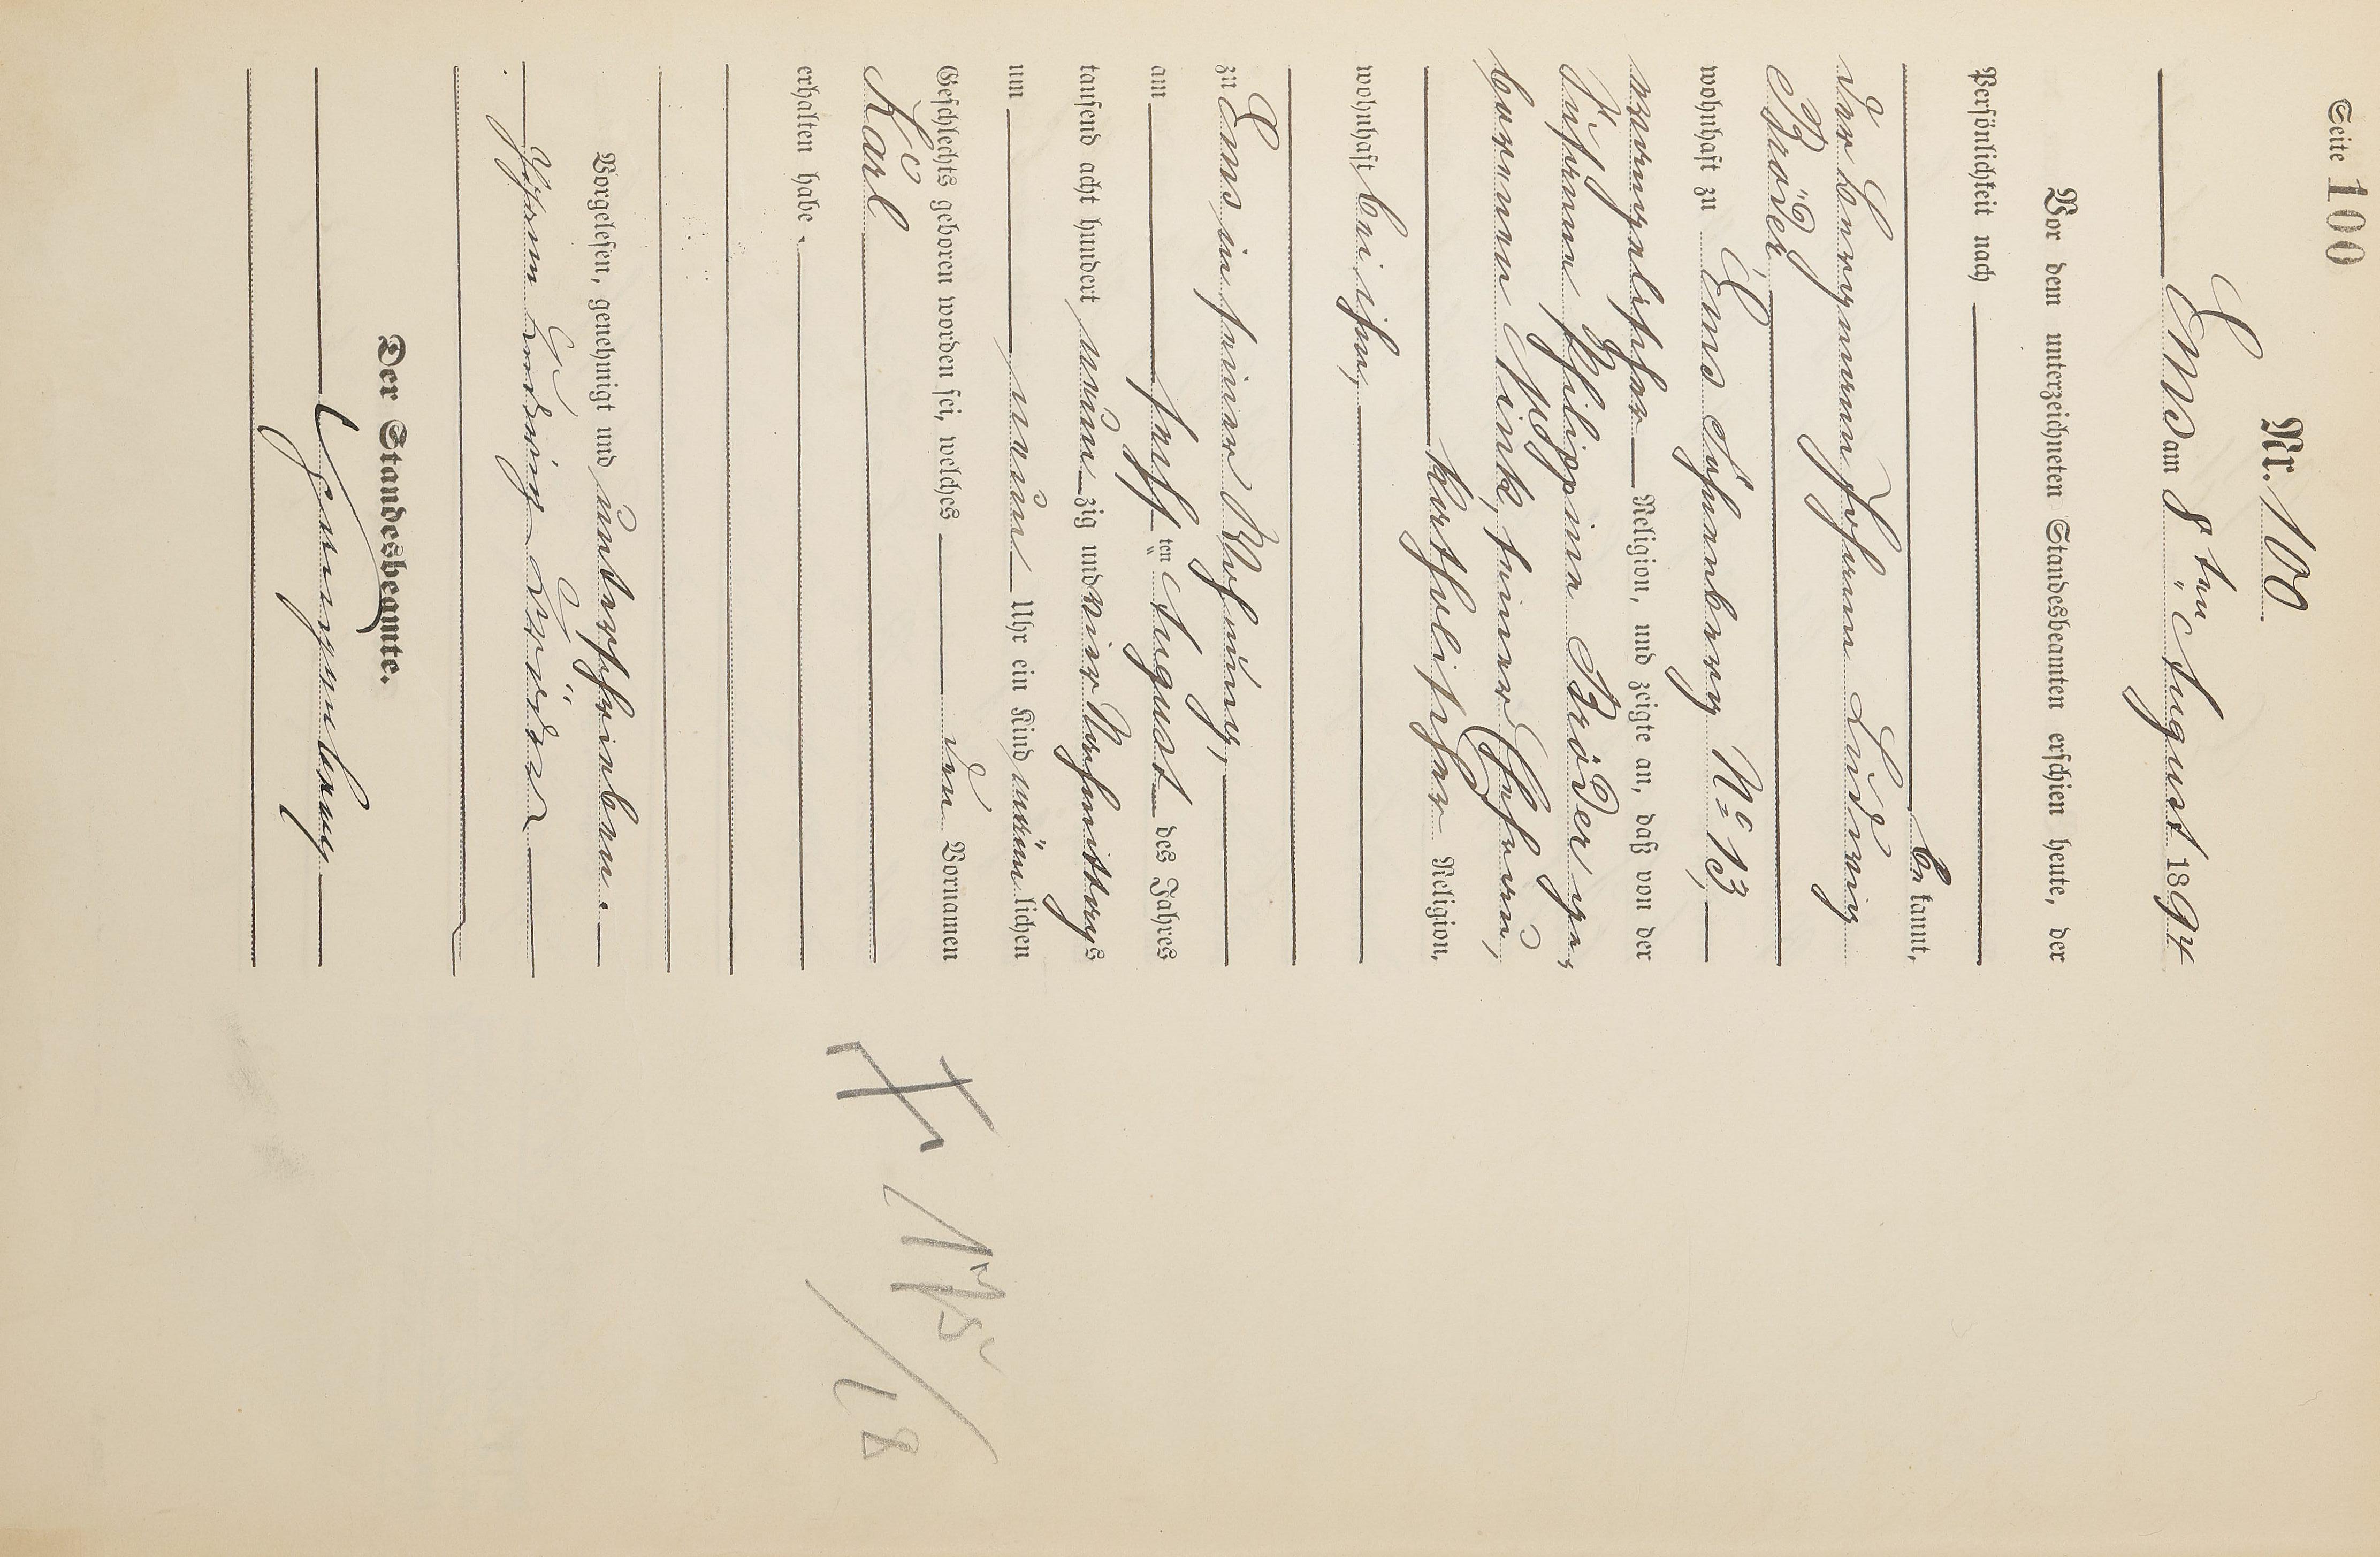 Seite 100
Nr. 100
Ems am 8ten August 1894
Vor dem unterzeichneten Standesbeamten erschien heute, der
Persönlichkeit nach
bekannt,
der Bergmann Johann Ludwig
Bröder
wohnhaft zu Ems Schanberg No 13,
evangelischer Religion, und zeigte an, daß von der
Philippine Bröder ge-
borenen Mink, seiner Ehefrau,
katholischer Religion,
wohnhaft bei ihm,
zu Ems in seiner Wohnung,
am sechsten August des Jahres
tausend acht hundert neunzig und vier Nachmittags
um neun Uhr ein Kind männlichen
Geschlechts geboren worden sei, welches den Vornamen
Karl
erhalten habe.
Vorgelesen, genehmigt und unterschrieben.
Johann Ludwig Bröder
Der Standesbeamte.